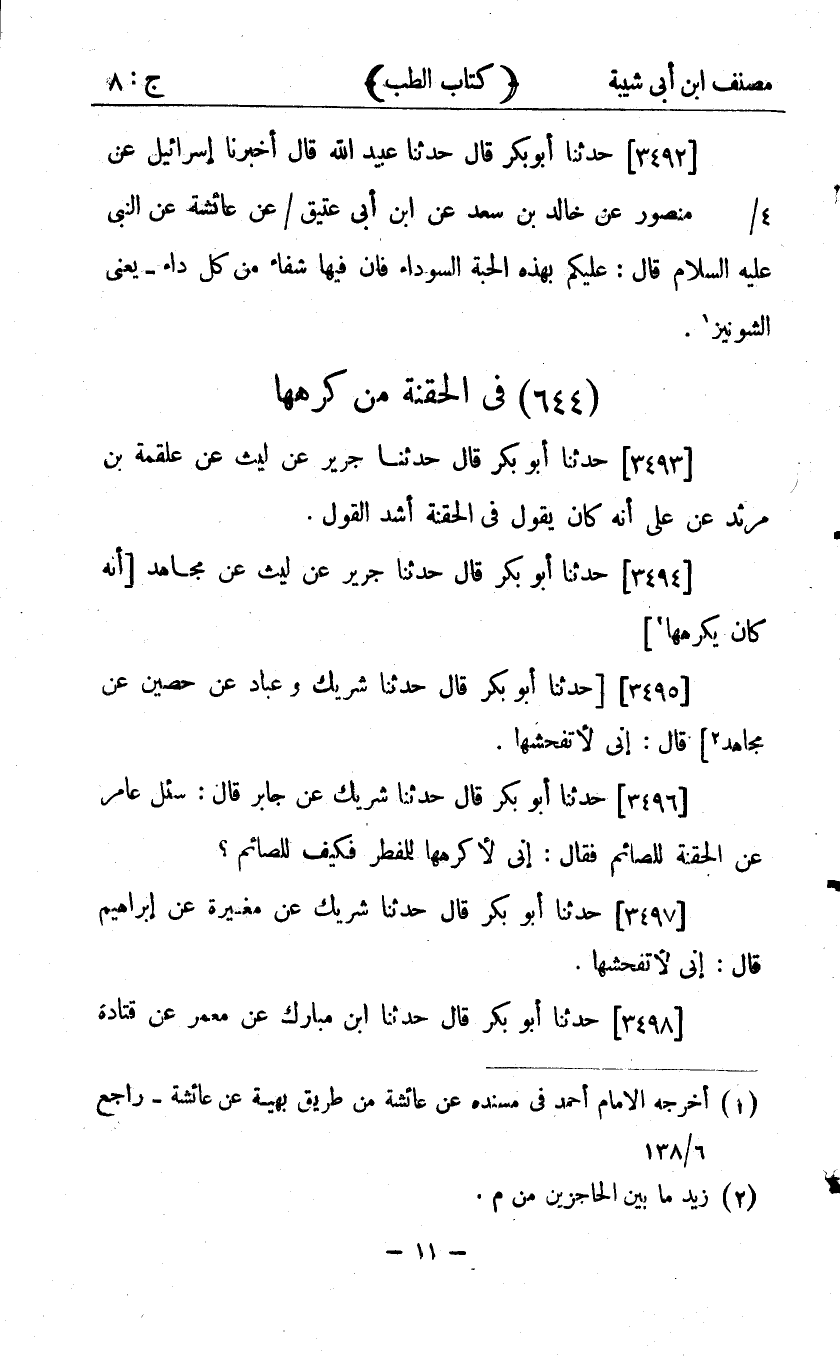 مصنف ابن أبى شيبة ﴿ كتاب الطب ﴾ ج : ٨
[٣٤٩٢] حدثنا أبوبكر قال حدثنا عبيد الله قال أخبرنا إسرائيل عن
٤/ منصور عن خالد بن سعد عن ابن أبى عتيق / عن عائشة عن النبى
عليه السلام قال : عليكم بهذه الحبة السوداء فان فيها شفاء من كل داء ـ يعنى
الشونيز١ .
(٦٤٤) فى الحقنة من كرهها
[٣٤٩٣] حدثنا أبو بكر قال حدثنا جرير عن ليث عن علقمة بن
مرثد عن على أنه كان يقول فى الحقنة أشد القول .
[٣٤٩٤] حدثنا أبو بكر قال حدثنا جرير عن ليث عن مجاهد [أنه
كان يكرهها٢]
[٣٤٩٥] [حدثنا أبو بكر قال حدثنا شريك و عباد عن حصين عن
مجاهد٢] قال : إنى لأتفحشها .
[٣٤٩٦] حدثنا أبو بكر قال حدثنا شريك عن جابر قال : سئل عامر
عن الحقنة للصائم فقال : إنى لأكرهها للفطر فكيف للصائم ؟
[٣٤٩٧] حدثنا أبو بكر قال حدثنا شريك عن مغيرة عن إبراهيم
قال : إنى لأتفحشها .
[٣٤٩٨] حدثنا أبو بكر قال حدثنا ابن مبارك عن معمر عن قتادة
(١) أخرجه الامام أحمد فى مسنده عن عائشة من طريق بهية عن عائشة ـ راجع
١٣٨/٦
(٢) زيد ما بين الحاجزين من م .
– ١١ –